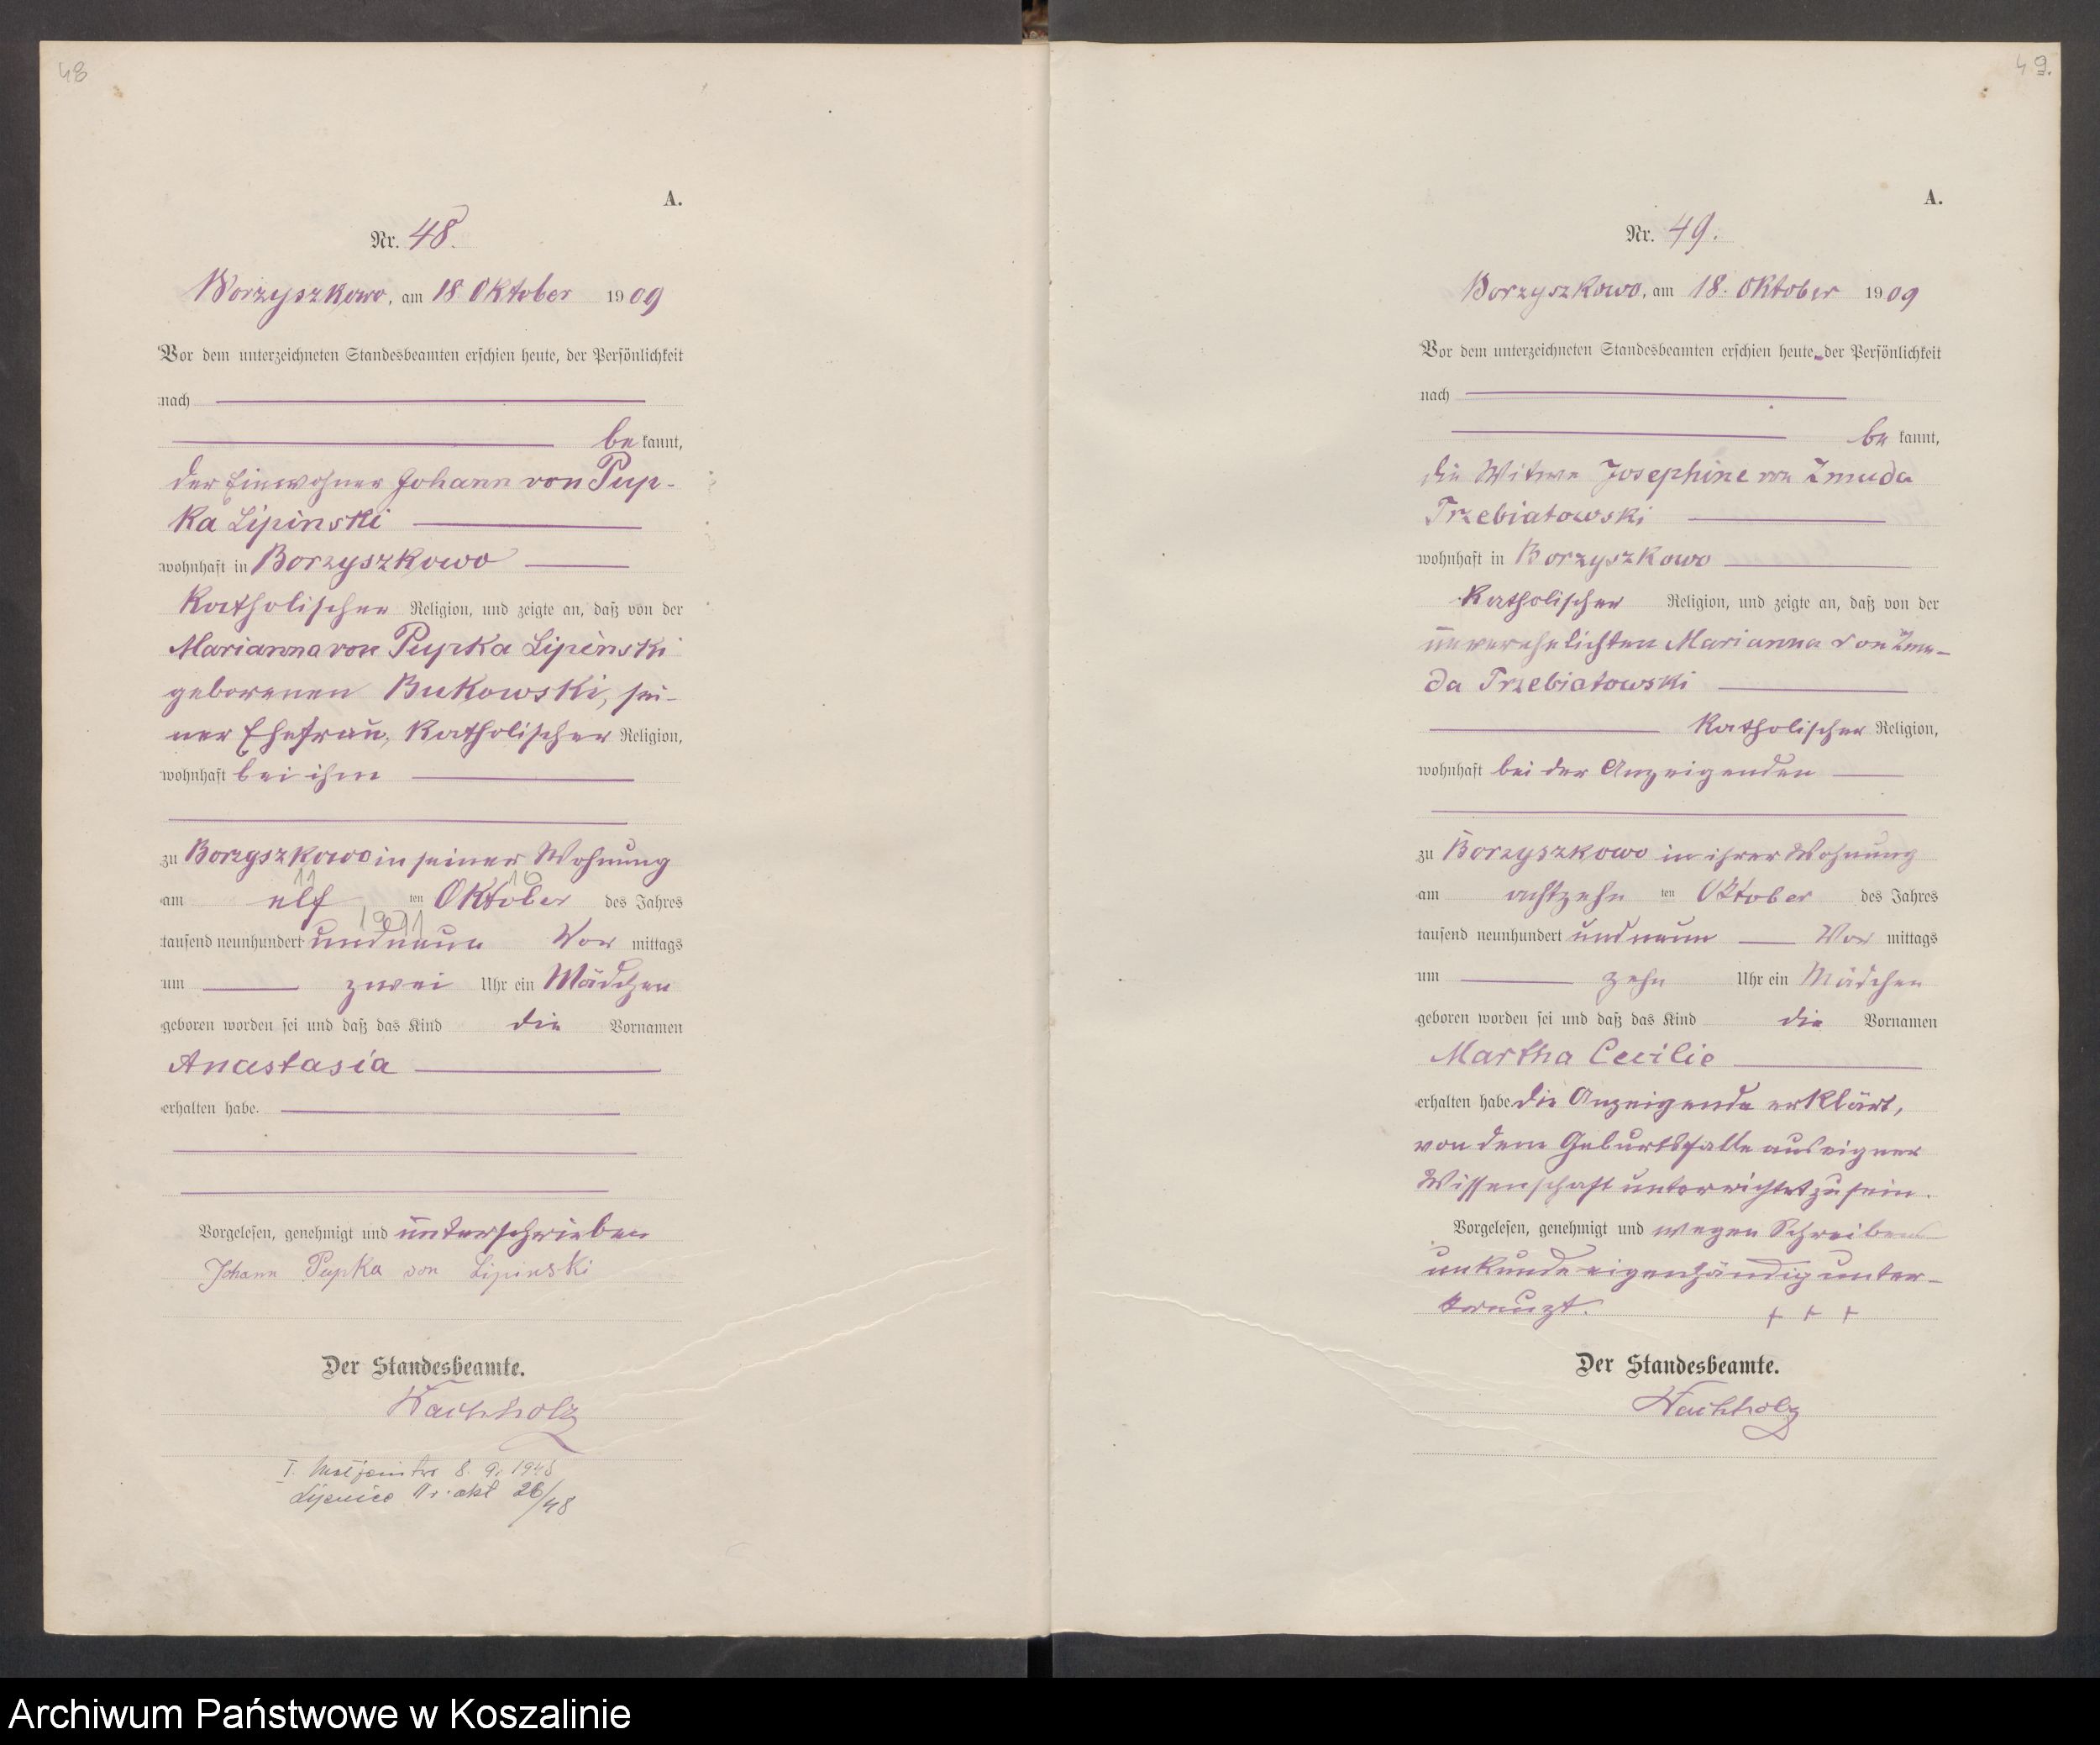 48
A.
Nr. 48.
Borzyszkowo, am 18. Oktober 1909
Vor dem unterzeichneten Standesbeamten erschien heute, der Persönlichkeit
nach
bekannt,
der Einwohner Johann von Pup-
ka Lipinski
wohnhaft in Borzyszkowo
katholischer Religion, und zeigte an, daß von der
Marianna von Pupka Lipinski
geborenen Bukowski, sei-
ner Ehefrau, katholischer Religion,
wohnhaft bei ihm
zu Borzyszkowo in seiner Wohnung
11 10
am elf ten Oktober des Jahres
tausend neunhundert undneun Vor mittags
um zwei Uhr ein Mädchen
geboren worden sei und daß das Kind die Vornamen
Anastasia
erhalten habe.
Vorgelesen, genehmigt und unterschrieben
Johann Pupka von Lipinski
Der Standesbeamte.
Wachholz
I. Małżeństwo 8. 9. 1948
Lipnica Nr. akt 26/48
49.
A.
Nr. 49.
Borzyszkowo, am 18. Oktober 1909
Vor dem unterzeichneten Standesbeamten erschien heute, der Persönlichkeit
nach
bekannt,
die Witwe Josephine von Zmuda
Trzebiatowski
wohnhaft in Borzyszkowo
katholischer Religion, und zeigte an, daß von der
unverehelichten Marianna von Zmu-
da Trzebiatowski
katholischer Religion,
wohnhaft bei der Anzeigenden
zu Borzyszkowo in ihrer Wohnung
am achtzehn ten Oktober des Jahres
tausend neunhundert undneun Vor mittags
um zehn Uhr ein Mädchen
geboren worden sei und daß das Kind die Vornamen
Martha Cecilie
erhalten habe die Anzeigende erklärt,
von dem Geburtsfalle aus eigner
Wissenschaft unterrichtet zu sein.
Vorgelesen, genehmigt und wegen Schreibens
unkunde eigenhändig unter-
kreuzt. + + +
Der Standesbeamte.
Wachholz
Archiwum Państwowe w Koszalinie